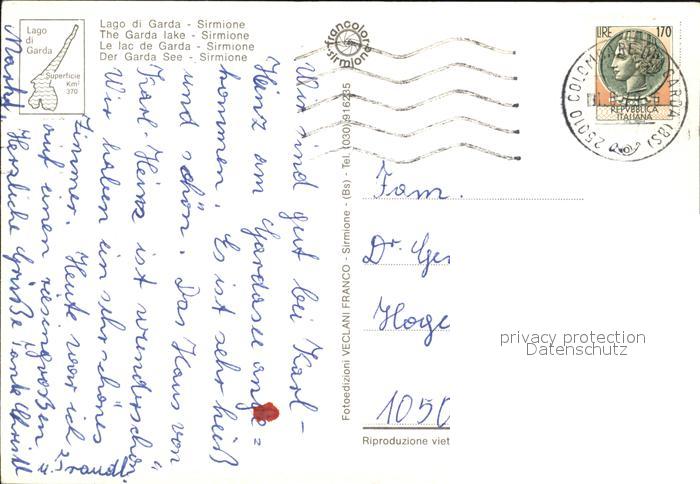 Lago di Garda - Sirmione
The Garda lake - Sirmione
Le lac de Garda - Sirmione
Der Garda See - Sirmione
Lago
di
Garda
Superficie
Km²
370
francolor
sirmione
LIRE 170
REPVBBLICA
ITALIANA
25010 COLOMBARE GARDA (BS)
Wir sind gut bei Karl-
Heinz am Gardasee ange=
kommen. Es ist sehr heiß
und schön. Das Haus von
Karl-Heinz ist wunderschön
Wir haben ein sehr schönes
Zimmer. Heute war ich
auf einen riesingroßen
Markt. Herzliche Grüße Tante Christl
u. Traudl.
Fotoedizioni VECLANI FRANCO - Sirmione - (Bs) - Tel. (030) 916235
Fam.
Dr. Ger
Hoge
1050
Riproduzione viet
privacy protection
Datenschutz